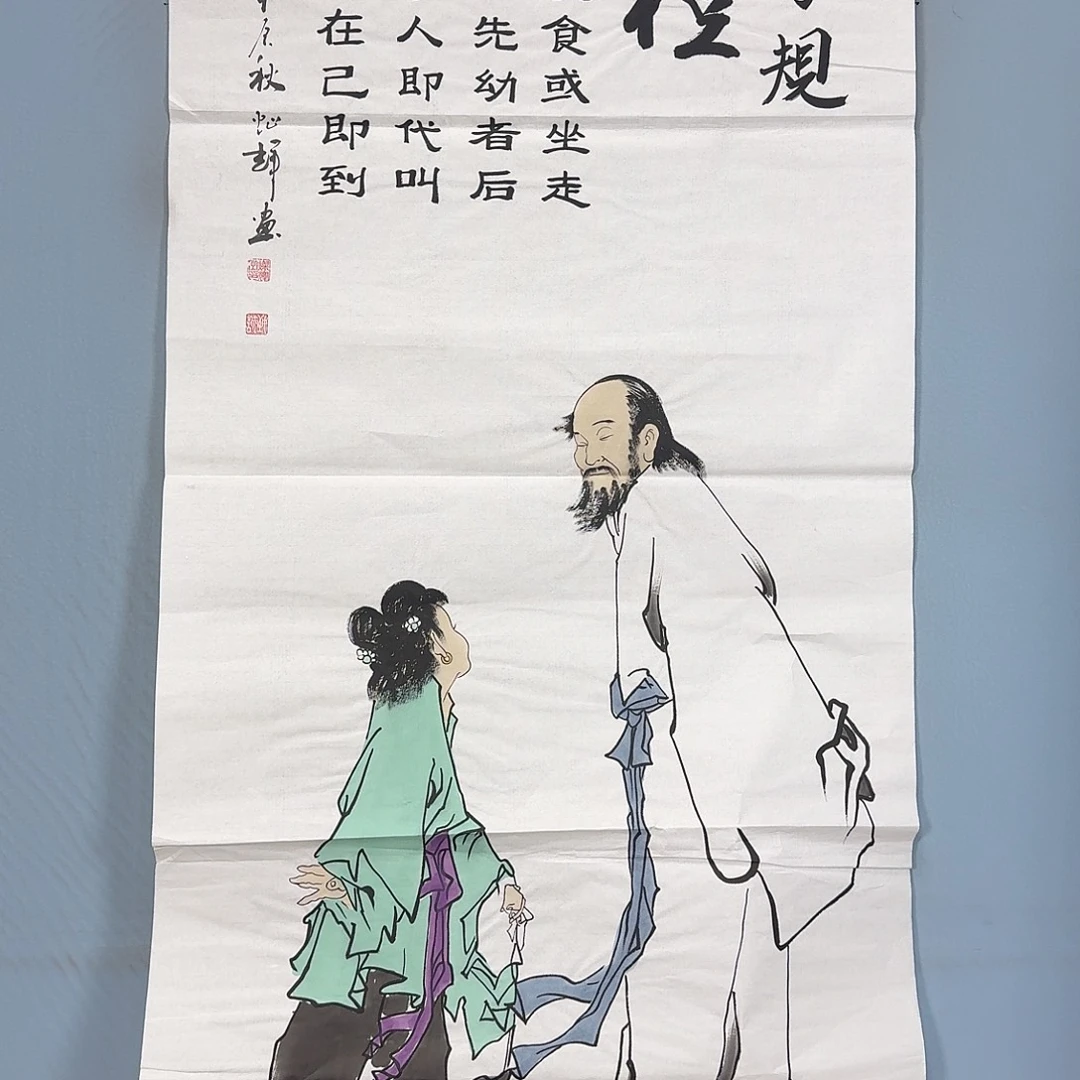 規
食或坐走
先幼者后
人即代叫
在己即到
辰秋灿辉画